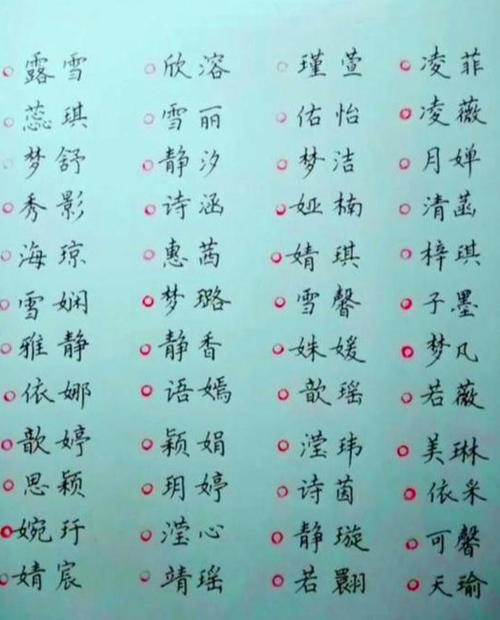 露雪 欣溶 瑾萱 凌菲
蕊琪 雪丽 佑怡 凌薇
梦舒 静汐 梦洁 月婵
秀影 诗涵 娅楠 清菡
海琼 惠茜 婧琪 梓琪
雪娴 梦璐 雪馨 子墨
雅静 静香 姝媛 梦凡
依娜 语嫣 歆瑶 若薇
歆婷 颖娟 滢玮 美琳
思颖 玥婷 诗茵 依采
婉玗 滢心 静璇 可馨
婧宸 靖瑶 若翾 天瑜